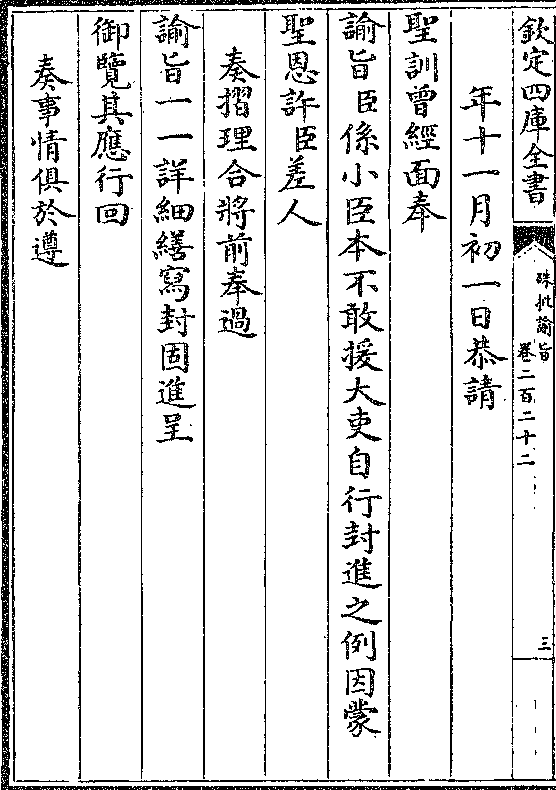 欽定四庫全書
硃批諭旨
卷二百二十二
三
年十一月初一日恭請
聖訓曾經面奉
諭旨臣係小臣本不敢援大吏自行封進之例因蒙
聖恩許臣差人
奏摺理合將前奉過
諭旨一一詳細繕寫封固進呈
御覽其應行回
奏事情俱於遵